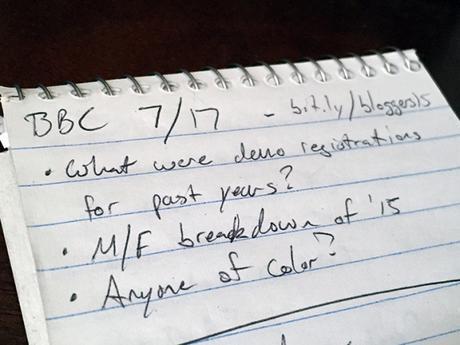 BBC 7/17 - bit.ly/bloggers15
• What were demo registrations
for past years?
• M/F breakdown of '15
• Anyone of color?